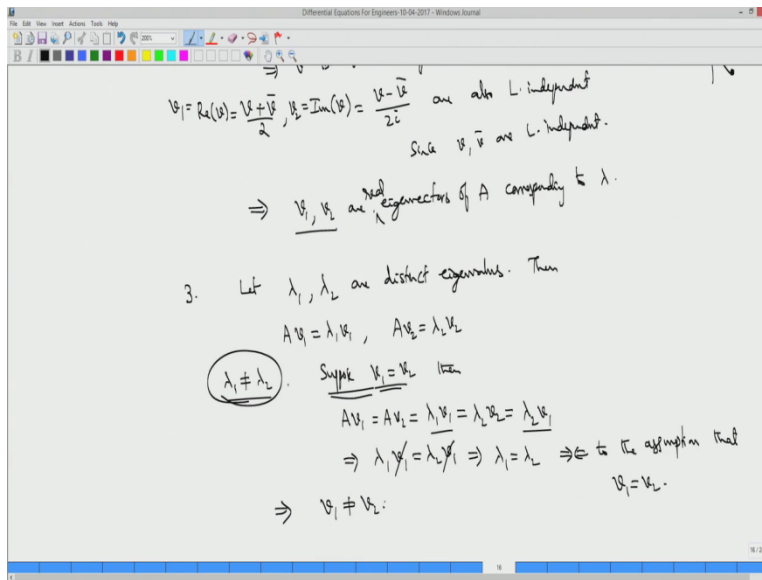 Differential Equations For Engineers-10-04-2017 - Windows Journal
File Edit View Insert Actions Tools Help
200%
B I
v₁ = Re(v) = (v + v̄)/2, v₂ = Im(v) = (v - v̄)/2i are also L. independent
Since v, v̄ are L. independent.
⇒ v₁, v₂ are real eigenvectors of A corresponding to λ.
3. Let λ₁, λ₂ are distinct eigenvalues. Then
Av₁ = λ₁v₁, Av₂ = λ₂v₂
λ₁ ≠ λ₂. Suppose v₁ = v₂ then
Av₁ = Av₂ = λ₁v₁ = λ₂v₂ = λ₂v₁
⇒ λ₁v₁ = λ₂v₁ ⇒ λ₁ = λ₂ ⇒⇐ to the assumption that
v₁ = v₂.
⇒ v₁ ≠ v₂.
16